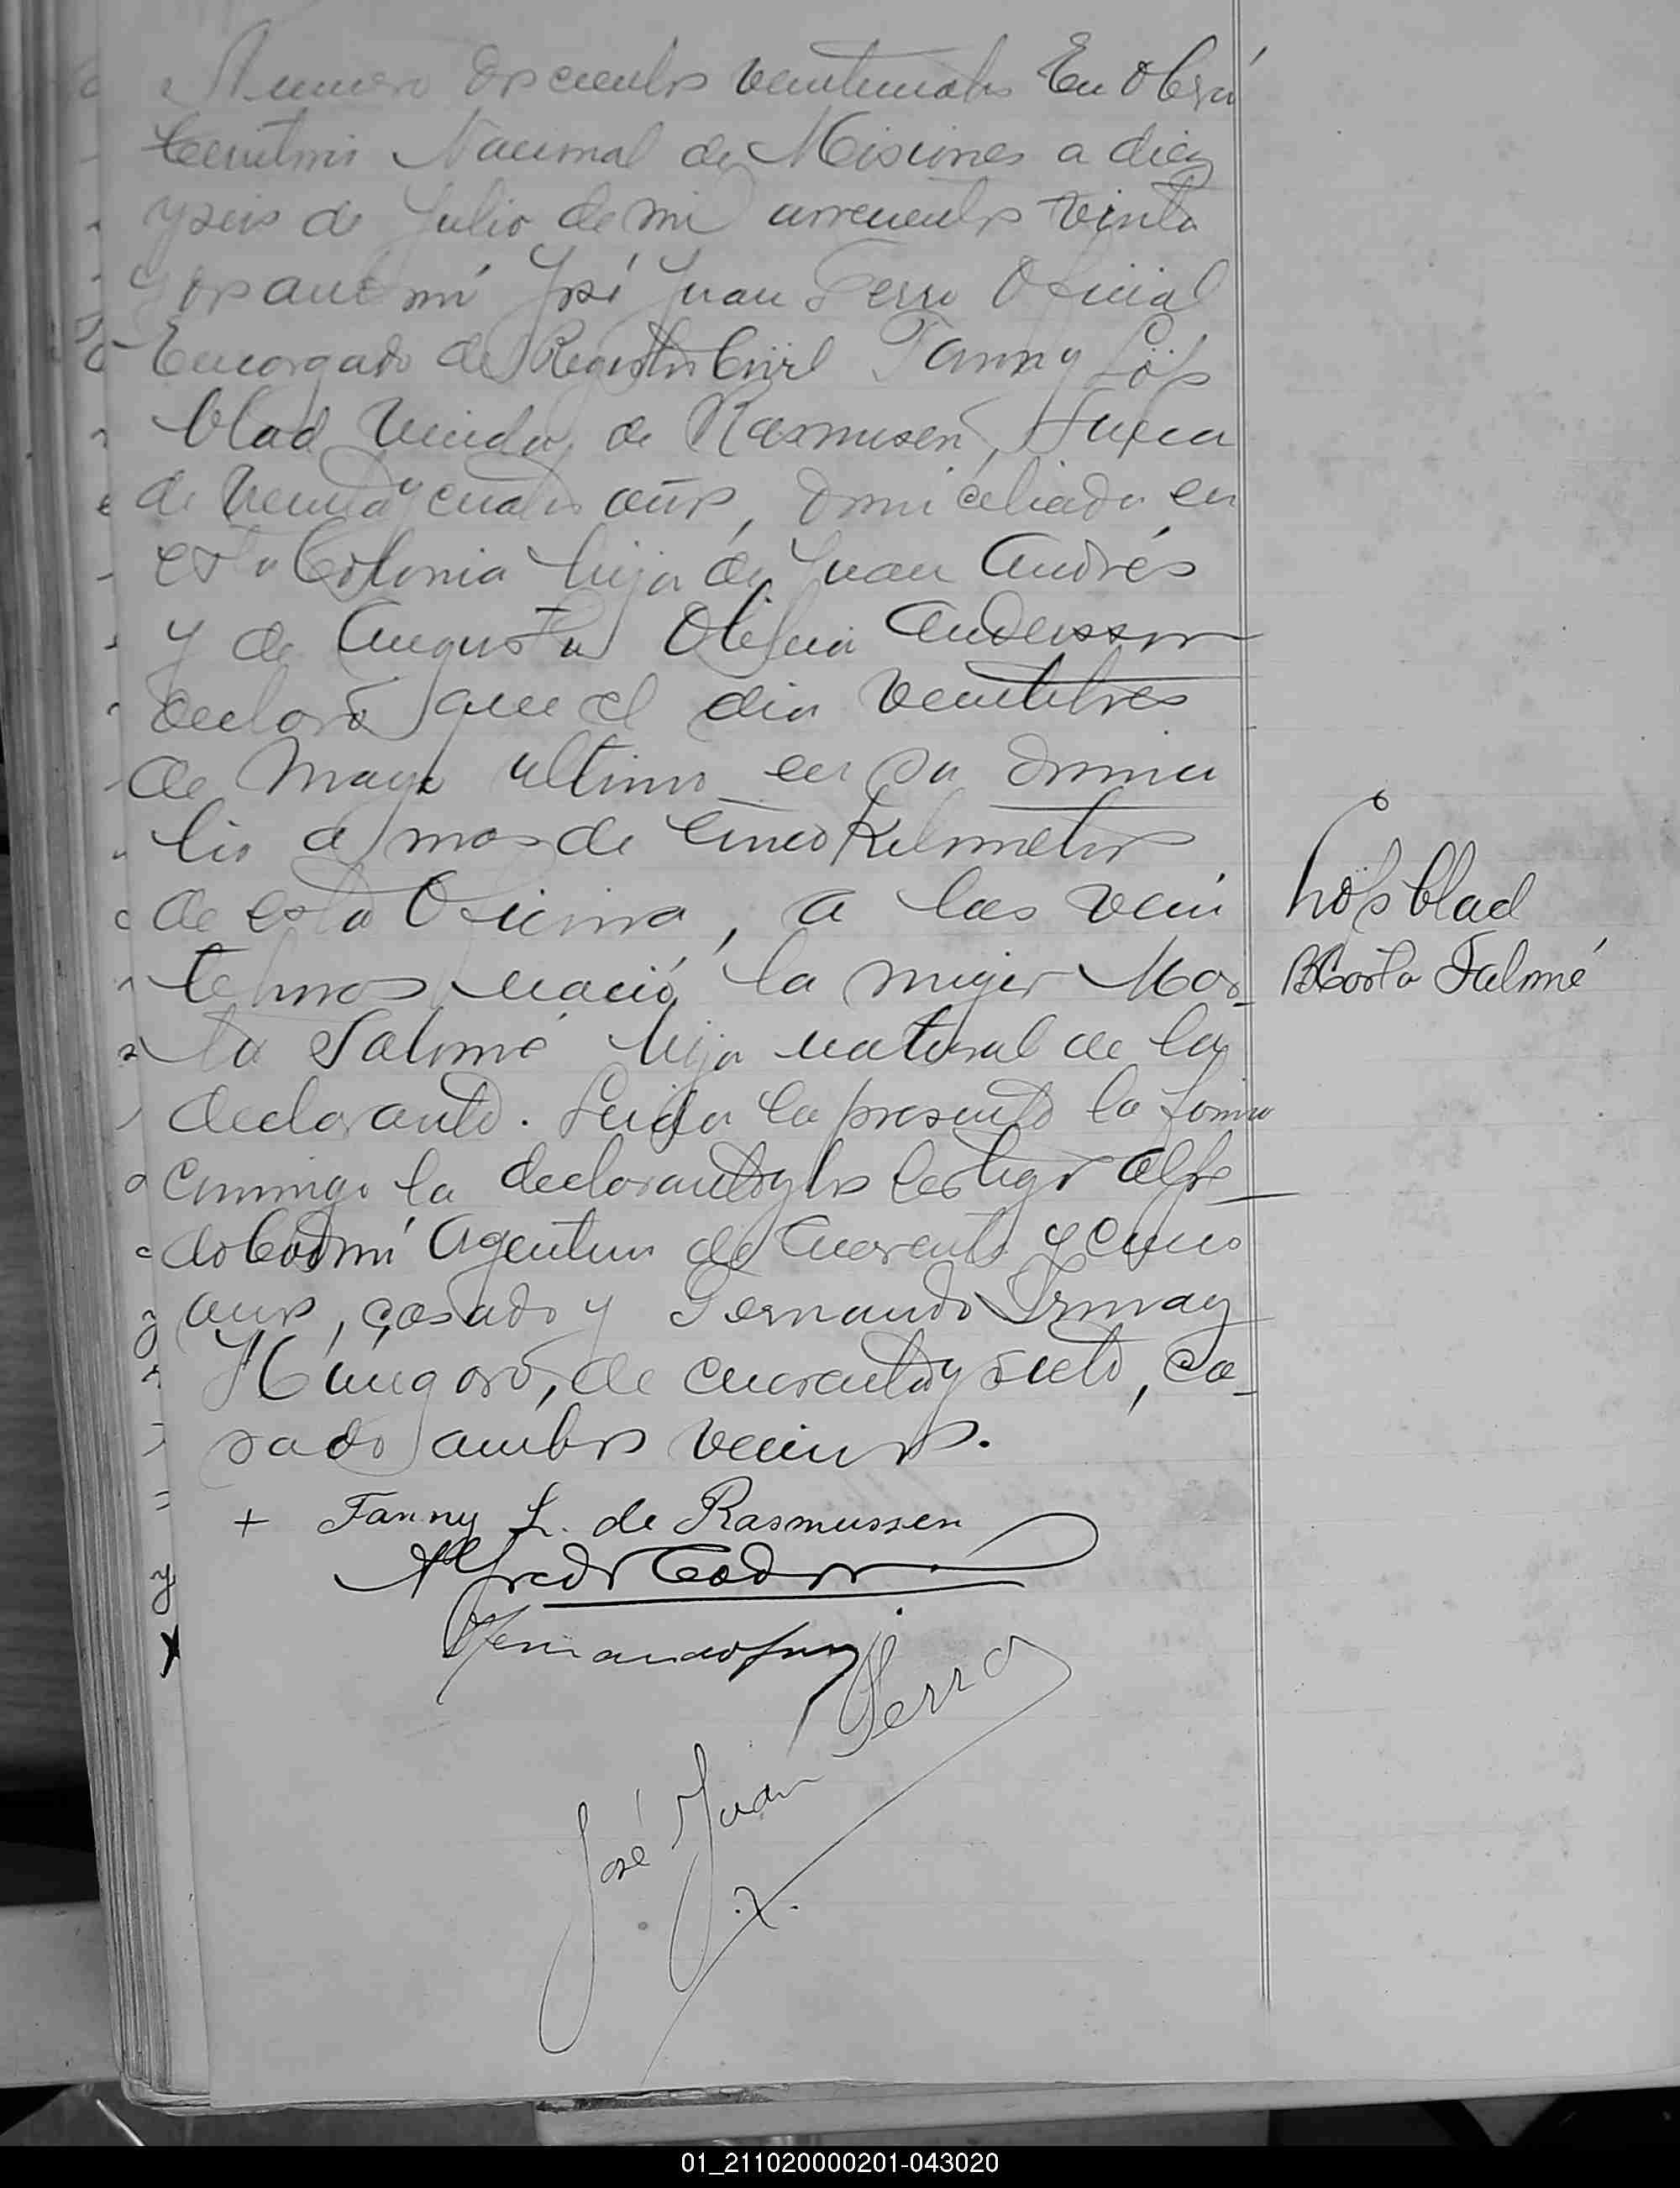 Numero doscientos veinticuatro En Oberá
territorio Nacional de Misiones a diez
y seis de Julio de mil novecientos veinte
y dos ante mi José Juan Ferro Oficial
Encargado del Registro Civil Fanny Löfs
blad Viuda de Rasmusen, Sueca
de treinta y cuatro años, domiciliada en
esta Colonia hija de Juan Andrés
y de Augusta Andersson
declaró que el dia veintitres
de Mayo ultimo en su domici
lio a mas de cinco Kilometros
de esta Oficina, a las vein
te horas nació la mujer Mar
ta Salomé hija natural de la
declarante. Leida la presente la firma
conmigo la declarante y los testigos Alfre
do Argentino de Cuarenta y cinco
años, casado y Fernando Irmay
Húngaro, de cuarenta y siete, ca
sado ambos vecinos.
Löfsblad
Marta Salomé
+ Fanny L. de Rasmussen
Alfredo
Fernando
José Juan Ferro
y
01_211020000201-043020